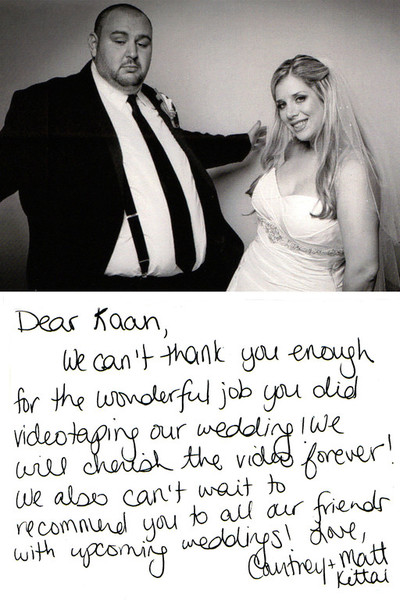 Dear Kaan,
We can't thank you enough
for the wonderful job you did
videotaping our wedding! We
will cherish the video forever!
We also can't wait to
recommend you to all our friends
with upcoming weddings! Love,
Courtney + Matt
Kittai